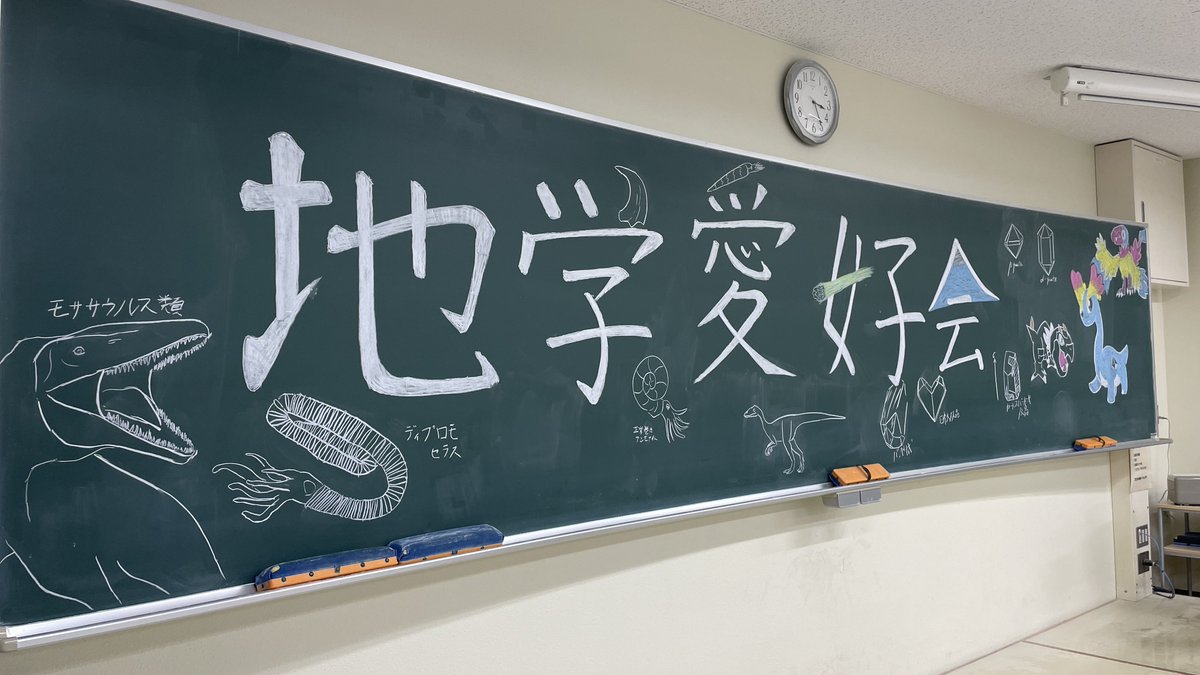 地学愛好会
モササウルス類
ディプロモ
セラス
正常巻き
アンモナイト
β-quartz
α-quartz